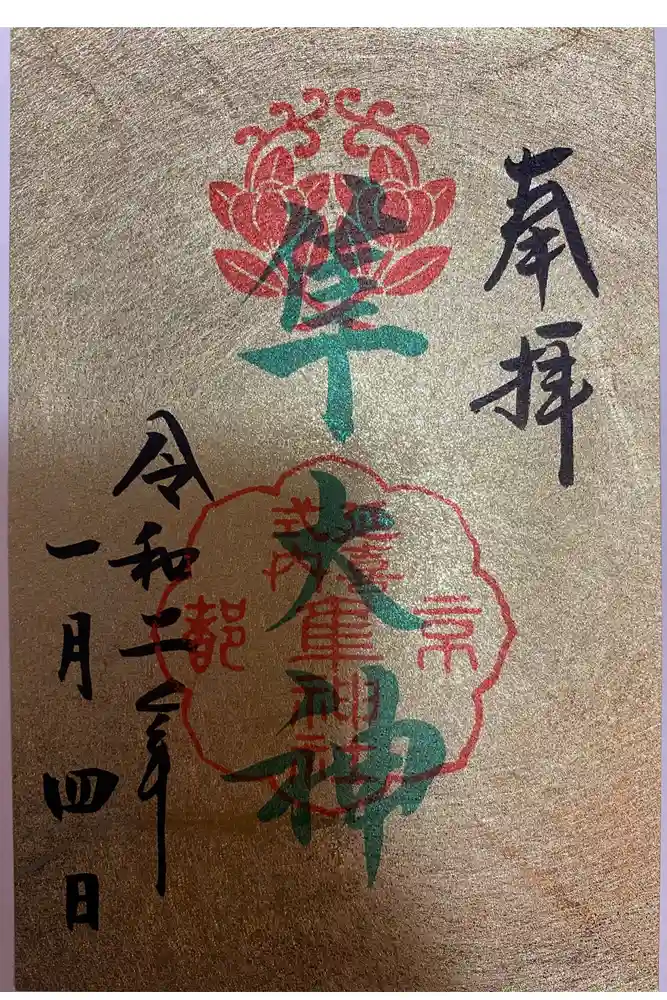 奉拝
隼大神
京都
延喜
式内
隼神社
令和二年
一月四日